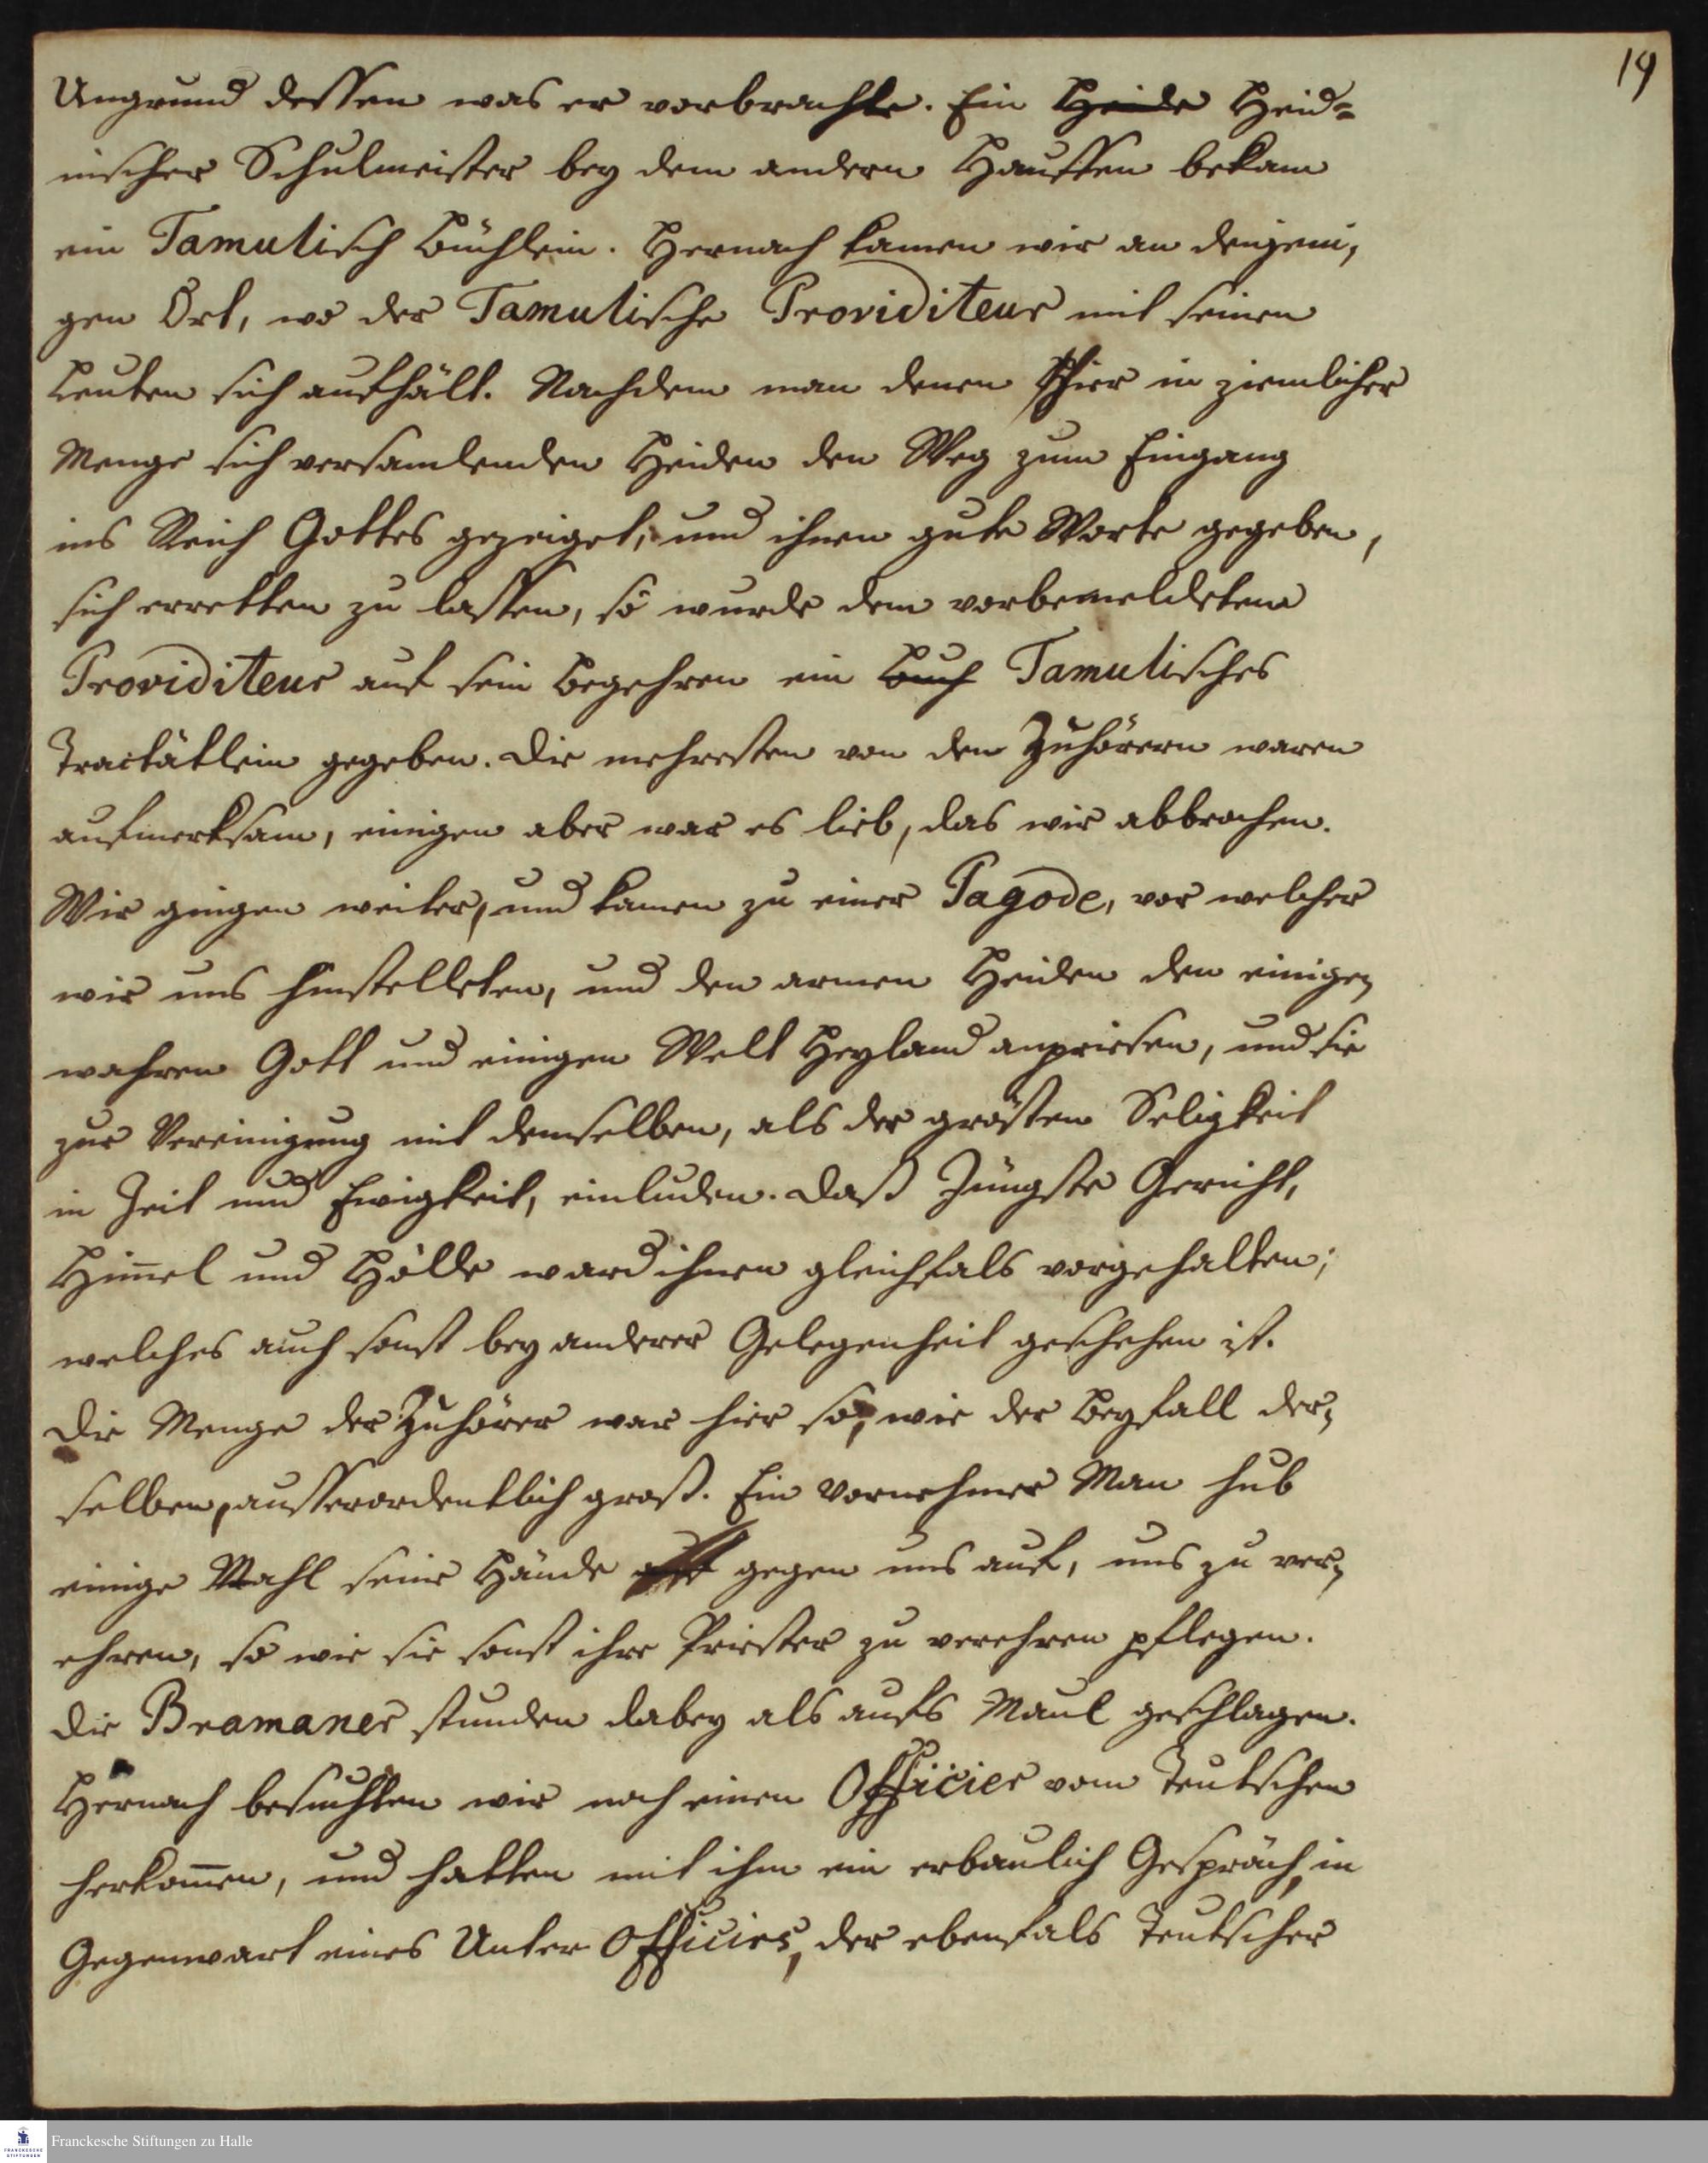 19
Ungrund dessen was er vorbrachte. Ein Heide Heid=
nischer Schulmeister bey dem andern Hauffen bekam
ein Tamulisch Büchlein. Hernach kamen wir an denjeni,
gen Ort, wo der Tamulische Providiteur mit seinen
Leuten sich aufhält. Nachdem man denen hier in ziemlicher
Menge sich versamlenden Heiden den Weg zum Eingang
ins Reich Gottes gezeiget, und ihnen gute Worte gegeben,
sich erretten zu lassen, so wurde dem vorbemeldetem
Providiteur auf sein Begehren ein Buch Tamulisches
Tractätlein gegeben. Die mehresten von den Zuhörern waren
aufmerksam, einigen aber war es lieb, das wir abbrachen.
Wir gingen weiter, und kamen zu einer Pagode, vor welcher
wir uns hinstelleten, und den armen Heiden den einigen
wahren Gott und einigen Welt Heyland anpriesen, und sie
zur Vereinigung mit demselben, als der grösten Seligkeit
in Zeit und Ewigkeit, einluden. Daß Jüngste Gericht,
Him̄el und Hölle ward ihnen gleichfals vorgehalten;
welches auch sonst bey anderer Gelegenheit geschehen ist.
Die Menge der Zuhörer war hier so, wie der Beyfall der,
selben, ausserordentlich groß. Ein Vornehmer Man hub
einige Mahl seine Hände auf gegen uns auf, uns zu ver,
ehren, so wie sie sonst ihre Priester zu verehren pflegen.
Die Bramaner stunden dabey als aufs Maul geschlagen.
Hernach besuchten wir noch einen Officier vom Teutschen
herkom̄en, und hatten mit ihm ein erbaulich Gespräch, in
Gegenwart eines Unter Officiers, der ebenfals Teutscher
Franckesche Stiftungen zu Halle